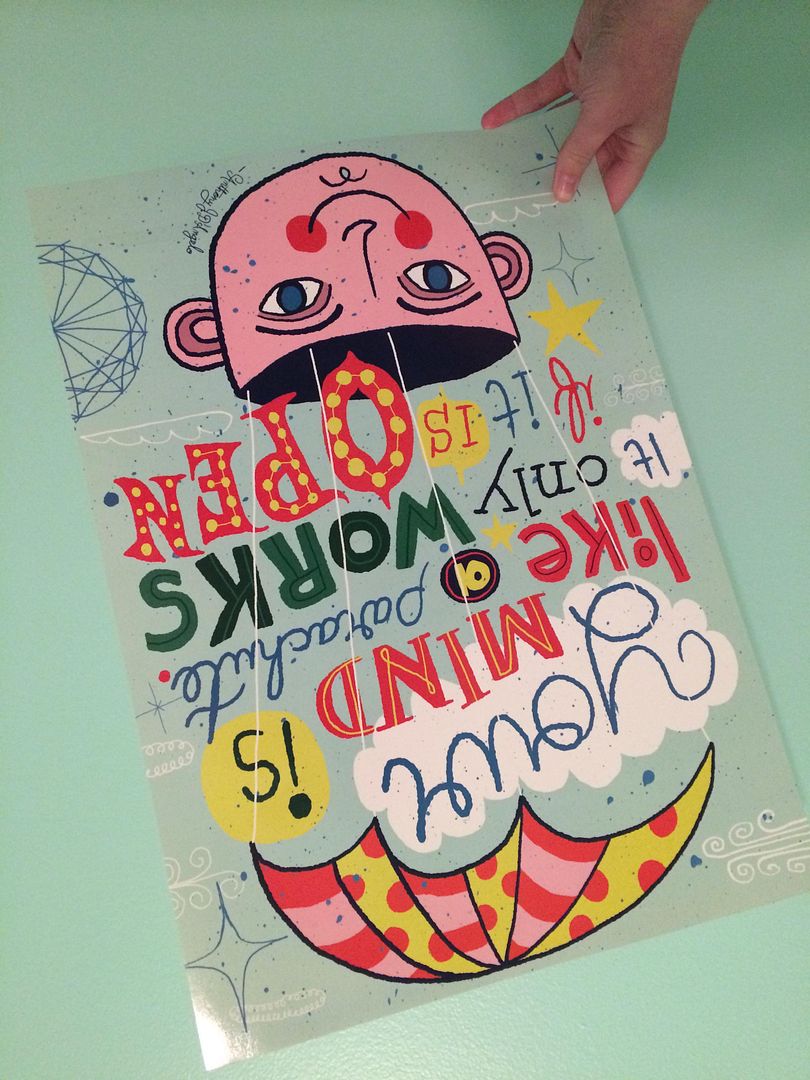 your
MIND is
like a parachute.
It only WORKS
if it IS OPEN
-Anthony J D'Angelo